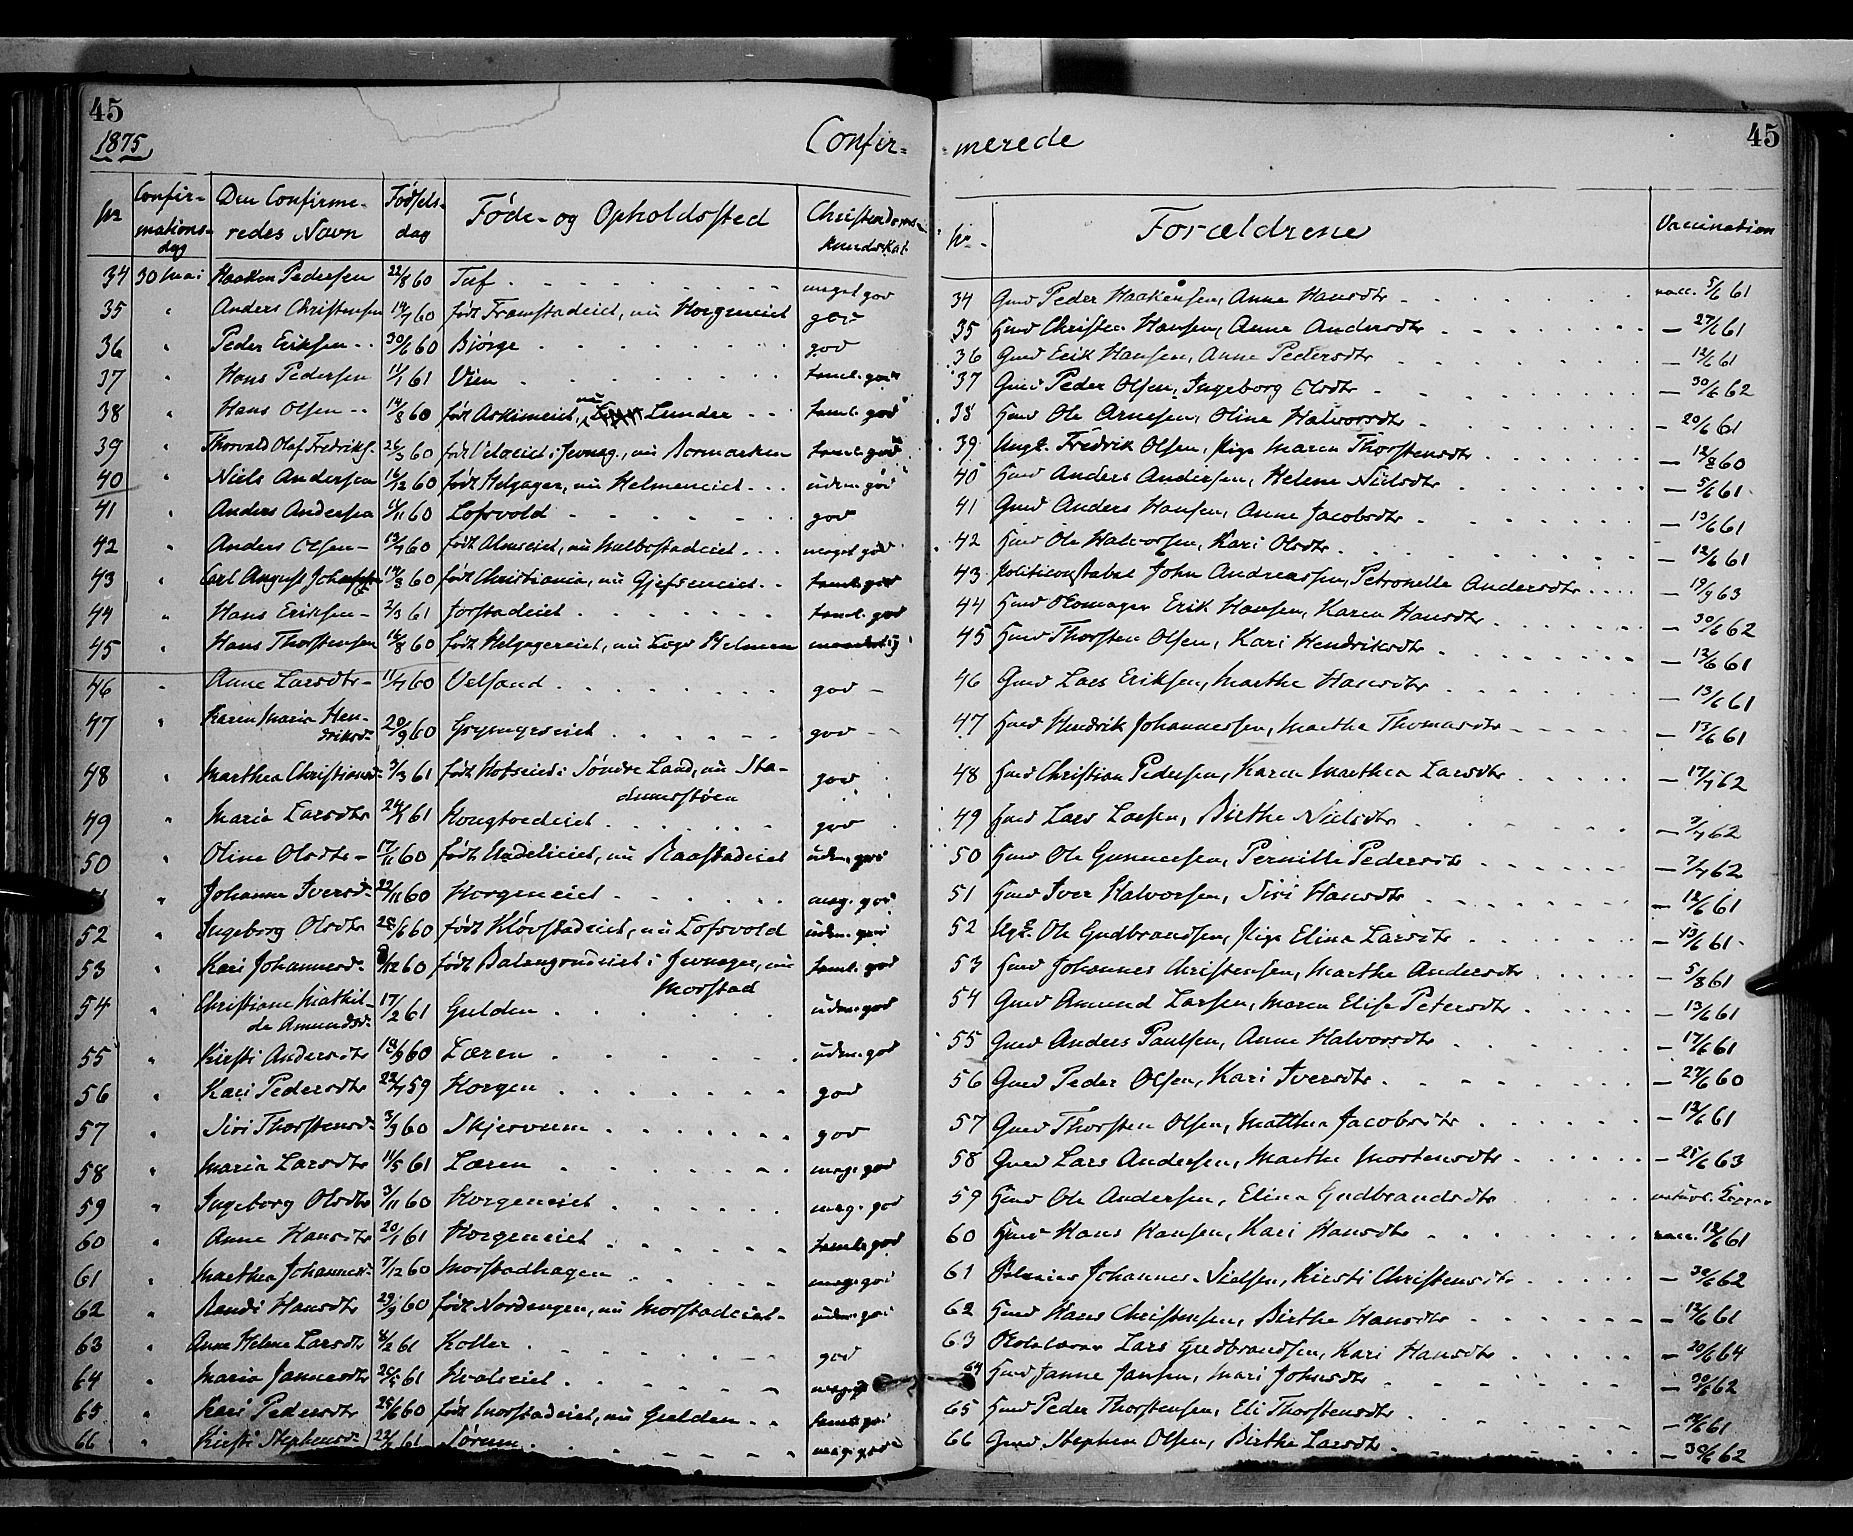 45
1875
Confir-
No
Confir-mations-dag
Den Confirme-redes Navn
Fødsels-dag
Føde- og Opholdssted
Christendoms-kundskab
34 30 Mai Haaken Pedersen 22/8 60 Tuf meget god
35 " Anders Christensen 14/7 60 født Framstadeiet, nu Horgeneiet god
36 " Peder Eriksen 30/6 60 Bjørge god
37 " Hans Pedersen 11/1 61 Vien teml. god
38 " Hans Olsen 14/8 60 født Askimeiet, nu Lundre teml. god
39 " Thorvald Olaf Fredriks. 26/3 60 født i Jevnag., nu teml. god
40 " Niels Andersen 16/12 60 født Helgager, nu Helmeneiet udm. god
41 " Anders Andersen 6/11 60 Lofsvold god
42 " Anders Olsen 13/7 60 født Almseiet, nu meget god
43 " Carl August 14/8 60 født Christiania, nu Gjefseneiet teml. god
44 " Hans Eriksen 2/3 61 Jorstadeiet teml. god
45 " Hans Thorstensen 16/8 60 født Helgagereiet, nu Helmen
46 " Anne Larsdtr 11/7 60 Velsand god
47 " Karen Maria Hen-
driksd. 20/9 60 Grymyrseiet god
48 " Marthea Christiansd. 3/3 61 født Hofseiet i Søndre Land, nu Sta-
dumsstøen god
49 " Maria Larsdtr 24/1 61 Hougtvedteiet god
50 " Oline Olsdtr 17/11 60 født nu Raastadeiet udm. god
51 " Johanne Iversd. 22/11 60 Horgeneiet meg. god
52 " Ingeborg Olsdtr 25/6 60 født Kløvstadeiet, nu Lofsvold udm. god
53 " Kari Johannesd. 8/12 60 født i Jevnager, nu
Morstad teml. god
54 " Christiane Mathil-
de Amundsd. 17/2 61 Gulden udm. god
55 " Kirsti Andersdtr 18/9 60 Læren udm. god
56 " Kari Pedersdtr 22/7 59 Horgen god
57 " Siri Thorstensd. 3/9 60 Skjervum god
58 " Maria Larsdtr 11/5 61 Læren meg. god
59 " Ingeborg Olsdtr 3/11 60 Horgeneiet meg. god
60 " Anne Hansdtr 20/1 61 Horgeneiet teml. god
61 " Marthea Johannesd. 7/12 60 Morstadhagen meg. god
62 " Randi Hansdtr 29/9 60 født Nordengen, nu Morstadeiet udm. god
63 " Anne Helene Larsdtr 8/2 61 Koller god
64 " Maria Jannesdtr 61 Hvaleeiet
65 " Kari Pedersdtr 25/6 60 født Morstadeiet, nu Gulden teml. god
66 " Kirsti Stephensd. 61 Sørum meg. god
45
-merede
No
Forældrene
Vaccination
34 Gmd Peder Haakensen, Anne Hansdtr vacc. 5/6 61
35 Hmd Christen Hansen, Anne Andersdtr — 27/6 61
36 Gmd Erik Hansen, Anne Pedersdtr — 12/6 61
37 Gmd Peder Olsen, Ingeborg Olsdtr — 30/6 62
38 Hmd Ole Arnesen, Oline Halvorsdtr — 20/6 61
39 Ungk. Fredrik Olsen, Pige Maren Thorstensdtr — 12/8 60
40 Hmd Anders Andersen, Helene Nielsdtr — 5/6 61
41 Gmd Anders Hansen, Anne Jacobsdtr — 13/6 61
42 Hmd Ole Halvorsen, Kari Olsdtr — 12/6 61
43 Politiconstabel John Andreassen, Petronelle Andersdtr — 19/9 63
44 Hmd Skomager Erik Hansen, Karen Hansdtr — 30/6 62
45 Hmd Thorsten Olsen, Kari Hendriksdtr — 12/6 61
46 Gmd Lars Eriksen, Marthe Hansdtr — 13/6 61
47 Hmd Hendrik Johannessen, Marthe Thomasdtr — 13/6 61
48 Hmd Christian Pedersen, Karen Marthea Larsdtr — 17/7 62
49 Hmd Lars Larsen, Birthe Nielsdtr — 3/7 62
50 Hmd Ole Gunnersen, Pernille Pedersdtr — 7/7 62
51 Hmd Iver Halvorsen, Siri Hansdtr — 12/6 61
52 Ugk. Ole Gudbrandsen, Pige Elina Larsdtr — 13/6 61
53 Hmd Johannes Christensen, Marthe Andersdtr — 5/8 61
54 Gmd Amund Larsen, Maren Elise Petersdtr — 13/6 61
55 Gmd Anders Paulsen, Anne Halvorsdtr — 17/6 61
56 Gmd Peder Olsen, Kari Iversdtr — 27/6 60
57 Gmd Thorsten Olsen, Matthea Jacobsdtr — 12/6 61
58 Gmd Lars Andersen, Marthe Mortensdtr — 25/6 63
59 Hmd Ole Andersen, Elina Gudbrandsdtr naturl. Kopper
60 Hmd Hans Hansen, Kari Hansdtr vacc. 12/6 61
61 Johannes Nielsen, Kirsti Christensdtr — 30/6 62
62 Hmd Hans Christensen, Birthe Hansdtr — 12/6 61
63 Skolelærer Lars Gudbrandsen, Kari Hansdtr — 20/6 64
64 Hmd Janne Jansen, Mari Johnsdtr — 30/6 62
65 Hmd Peder Thorstensen, Eli Thorstensdtr — 12/6 61
66 Gmd Stephen Olsen, Birthe Larsdtr — 30/6 62